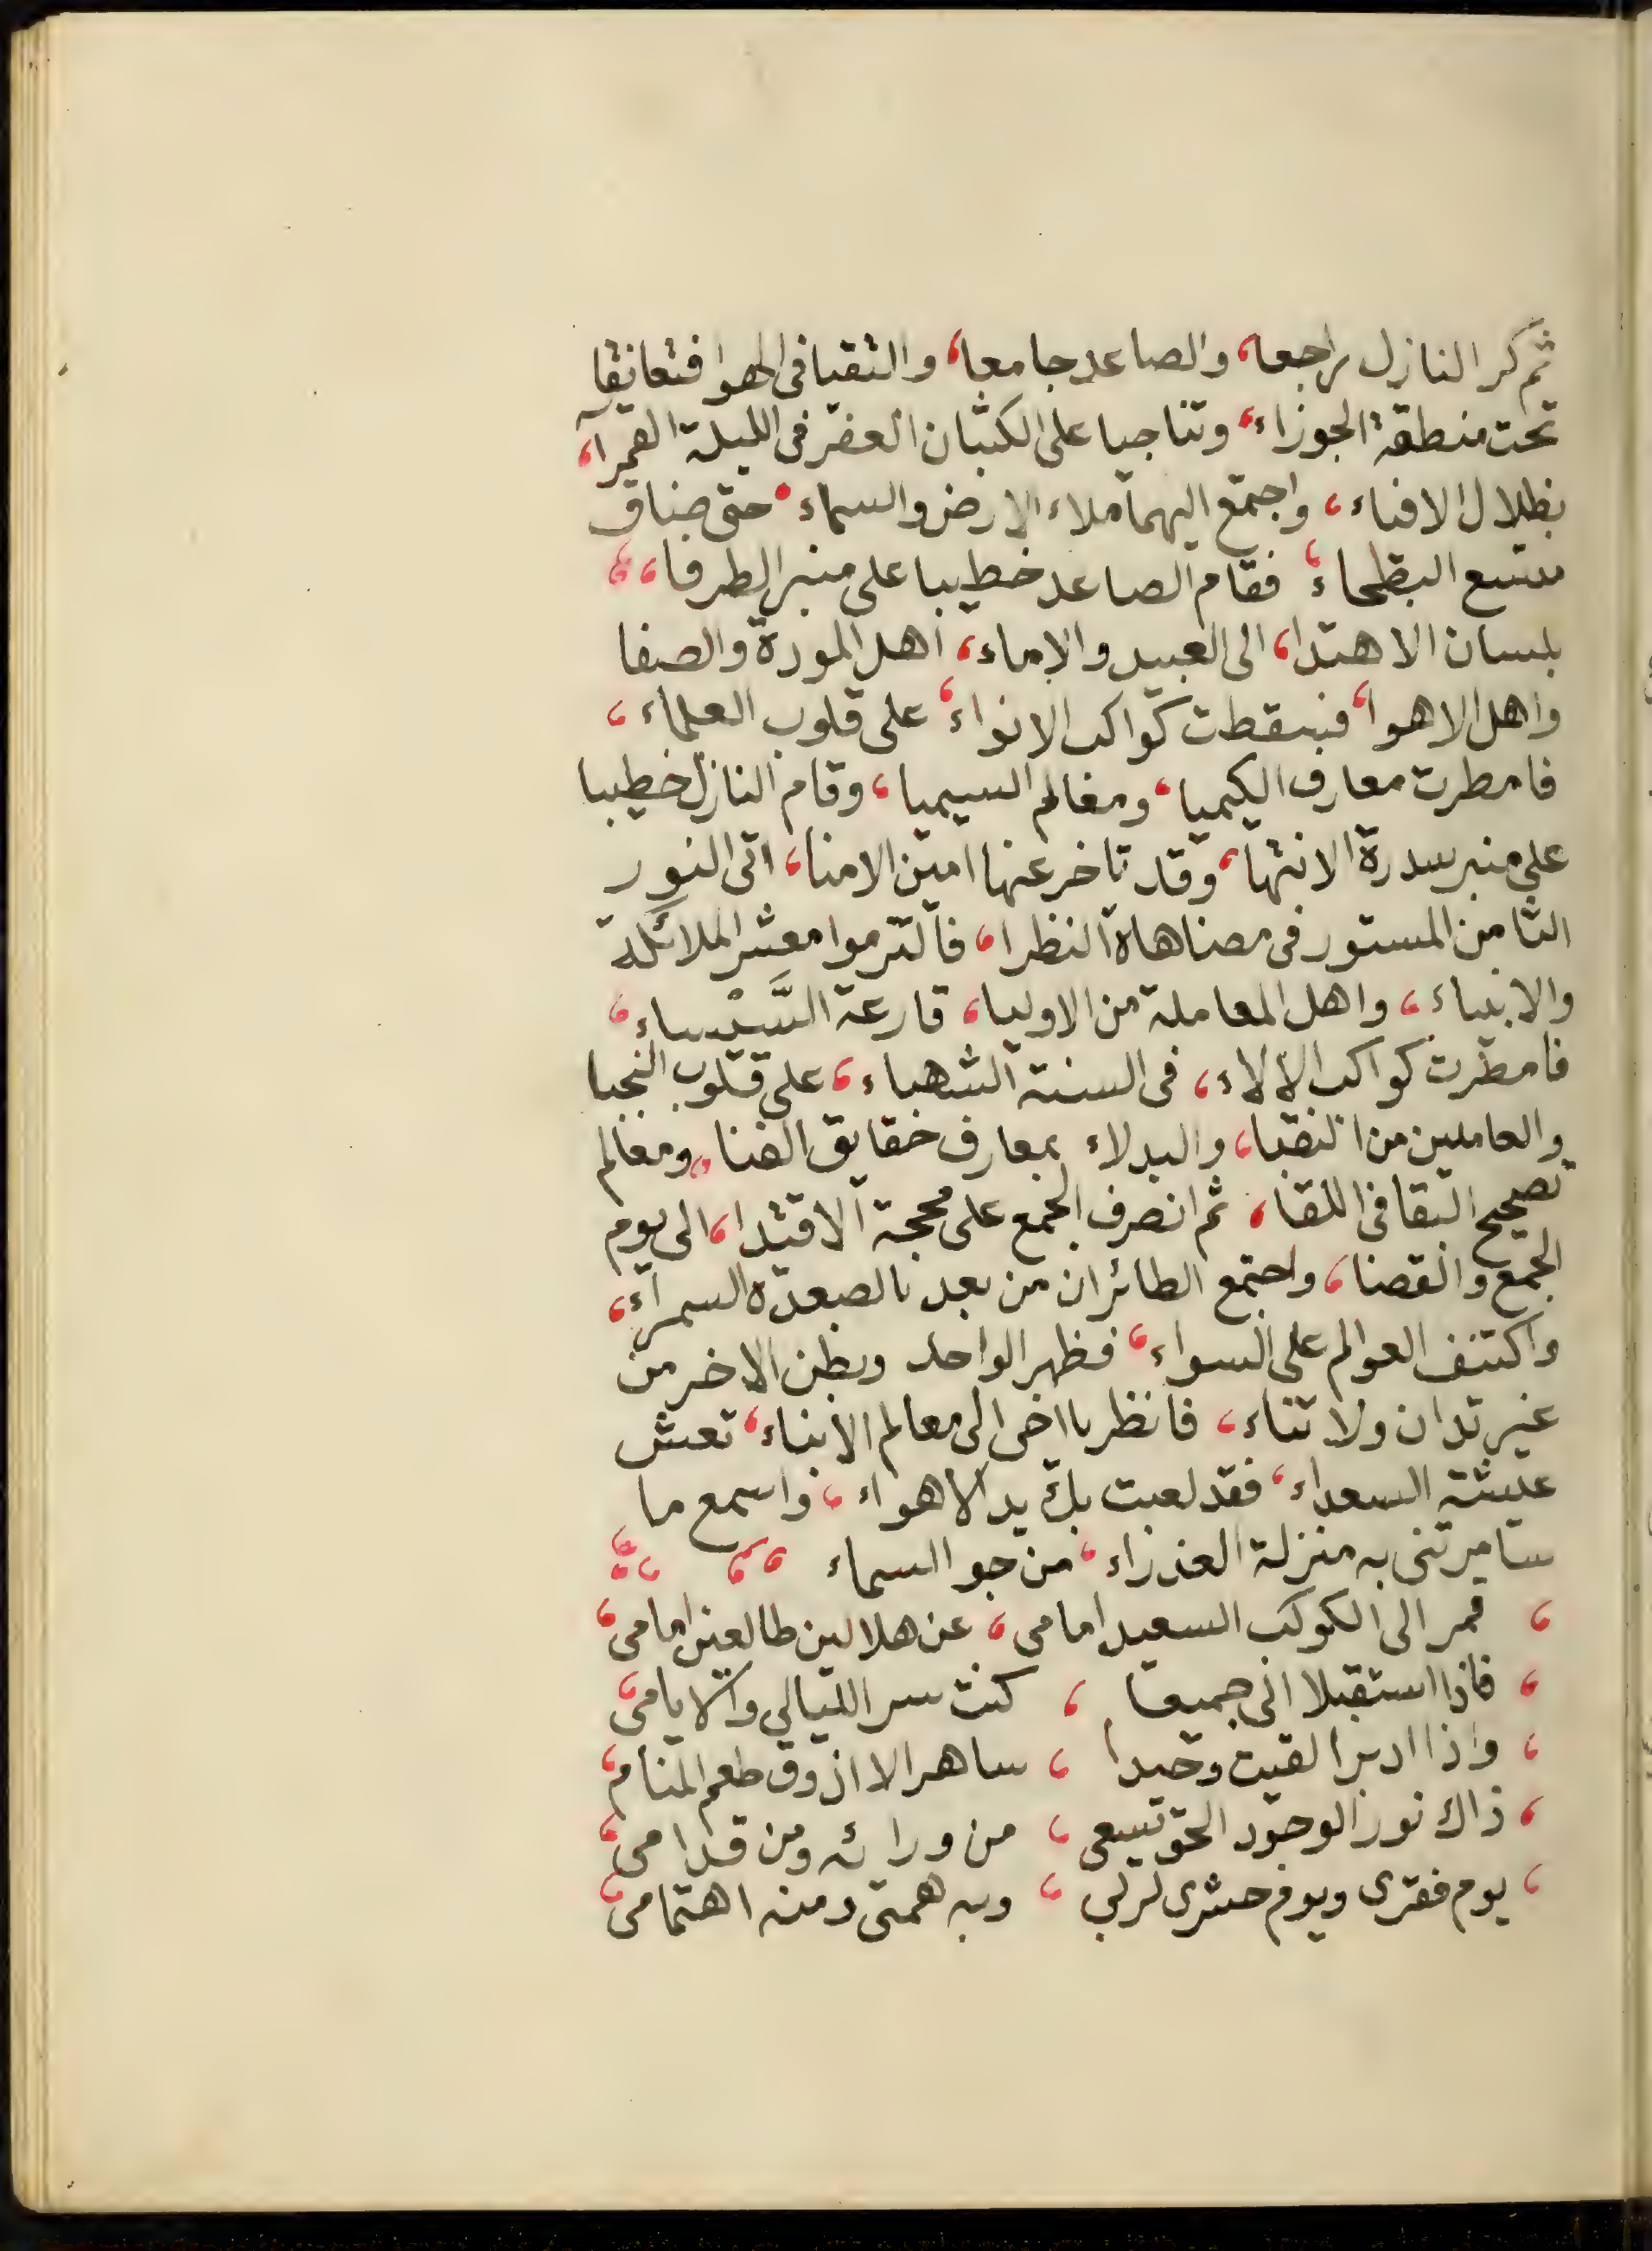 ثم كر النازل راجعا، والصاعد جامعا، والتقيا فى الهوا فتعانقا
تحت منطقة الجوزاء، وتناجيا على الكثبان العفر فى الليلة القمرآ،
بظلال الافناء، واجتمع اليهما ملاء الارض والسماء، حتى ضاق
متسع البطحاء، فقام الصاعد خطيبا على منبر الطرفا،
بلسان الاهتدا، الى العبيد والاماء، اهل المودة والصفا
واهل الاهوا، فسقطت كواكب الانواء، على قلوب العلماء،
فامطرت معارف الكيميا، ومعالم السيميا، وقام النازل خطيبا
على منبر سدرة الانتها، وقد تاخر عنها امين الامنا، اتى النور
الثامن المستور فى مضاهاة النظرا، فالتزموا معشر الملائكة
والانبياء، واهل المعاملة من الاوليا، قارعة السَّيْساء،
فامطرت كواكب الالاء، فى السنة الشهباء، على قلوب النجبا
والعاملين من النقبا، والبدلاء بمعارف حقايق الفنا، ومعالم
تصحيح البقا فى اللقا، ثم انصرف الجمع على محجة الاقتدا، الى يوم
الجمع والقضا، واجتمع الطائران من بعد بالصعدة السمرآء،
واكتنف العوالم على السواء، فظهر الواحد وبطن الاخر من
غير تدان ولا تناء، فانظر يا اخى الى معالم الانباء، تعش
عيشة السعداء، فقد لعبت بك يد الاهواء، واسمع ما
سامرتنى به منزلة العذراء، من جو السماء
، قمر الى الكوكب السعيد امامى، عن هلالين طالعين امامى،
، فاذا استقبلا الى جميعا ، كنت سر الليالى والايامى،
، واذا ادبرا لقيت وحيدا ، ساهرا لا اذوق طعم المنام،
، ذاك نور الوجود الحق تسعى ، من ورائه ومن قدامى،
، يوم فقرى ويوم حشرى لربى ، وبه همتى ومنه اهتمامى،